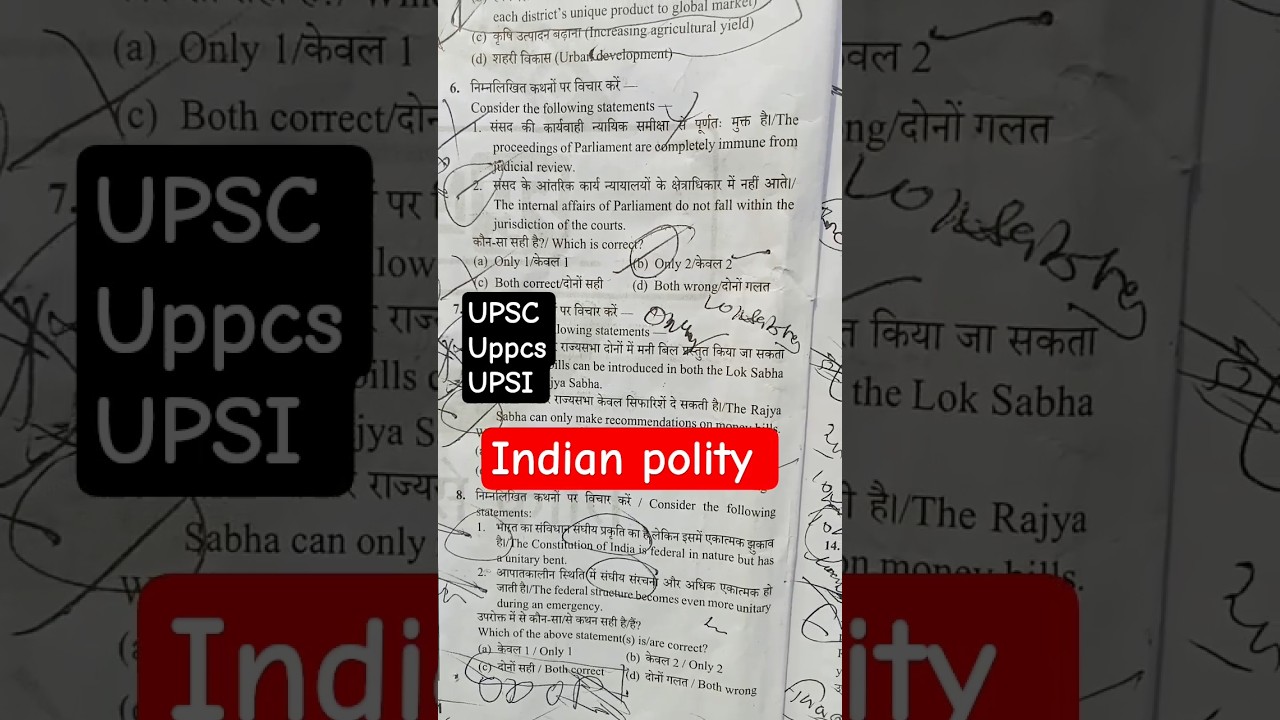 each district's unique product to global market)
(c) कृषि उत्पादन बढ़ाना (Increasing agricultural yield)
(d) शहरी विकास (Urban development)
6. निम्नलिखित कथनों पर विचार करें —
Consider the following statements —
1. संसद की कार्यवाही न्यायिक समीक्षा से पूर्णतः मुक्त है।/The
proceedings of Parliament are completely immune from
judicial review.
2. संसद के आंतरिक कार्य न्यायालयों के क्षेत्राधिकार में नहीं आते।/
The internal affairs of Parliament do not fall within the
jurisdiction of the courts.
कौन-सा सही है?/ Which is correct?
(a) Only 1/केवल 1
(b) Only 2/केवल 2
(c) Both correct/दोनों सही
(d) Both wrong/दोनों गलत
7. पर विचार करें —
lowing statements —
राज्यसभा दोनों में मनी बिल प्रस्तुत किया जा सकता
bills can be introduced in both the Lok Sabha
jya Sabha.
राज्यसभा केवल सिफारिशें दे सकती है।/The Rajya
Sabha can only make recommendations on money bills.
UPSC
Uppcs
UPSI
Indian polity
8. निम्नलिखित कथनों पर विचार करें / Consider the following
statements:
1. भारत का संविधान संघीय प्रकृति का है लेकिन इसमें एकात्मक झुकाव
है।/The Constitution of India is federal in nature but has
a unitary bent.
2. आपातकालीन स्थिति में संघीय संरचना और अधिक एकात्मक हो
जाती है।/The federal structure becomes even more unitary
during an emergency.
उपरोक्त में से कौन-सा/से कथन सही है/हैं?
Which of the above statement(s) is/are correct?
(a) केवल 1 / Only 1
(b) केवल 2 / Only 2
(c) दोनों सही / Both correct
(d) दोनों गलत / Both wrong
(a) Only 1/केवल 1
(c) Both correct/दोन
7.
पर
UPSC
Uppcs
UPSI
राज्य
Sabha can only
Indi
वल 2
ng/दोनों गलत
त किया जा सकता
the Lok Sabha
है।/The Rajya
n money bills.
14.